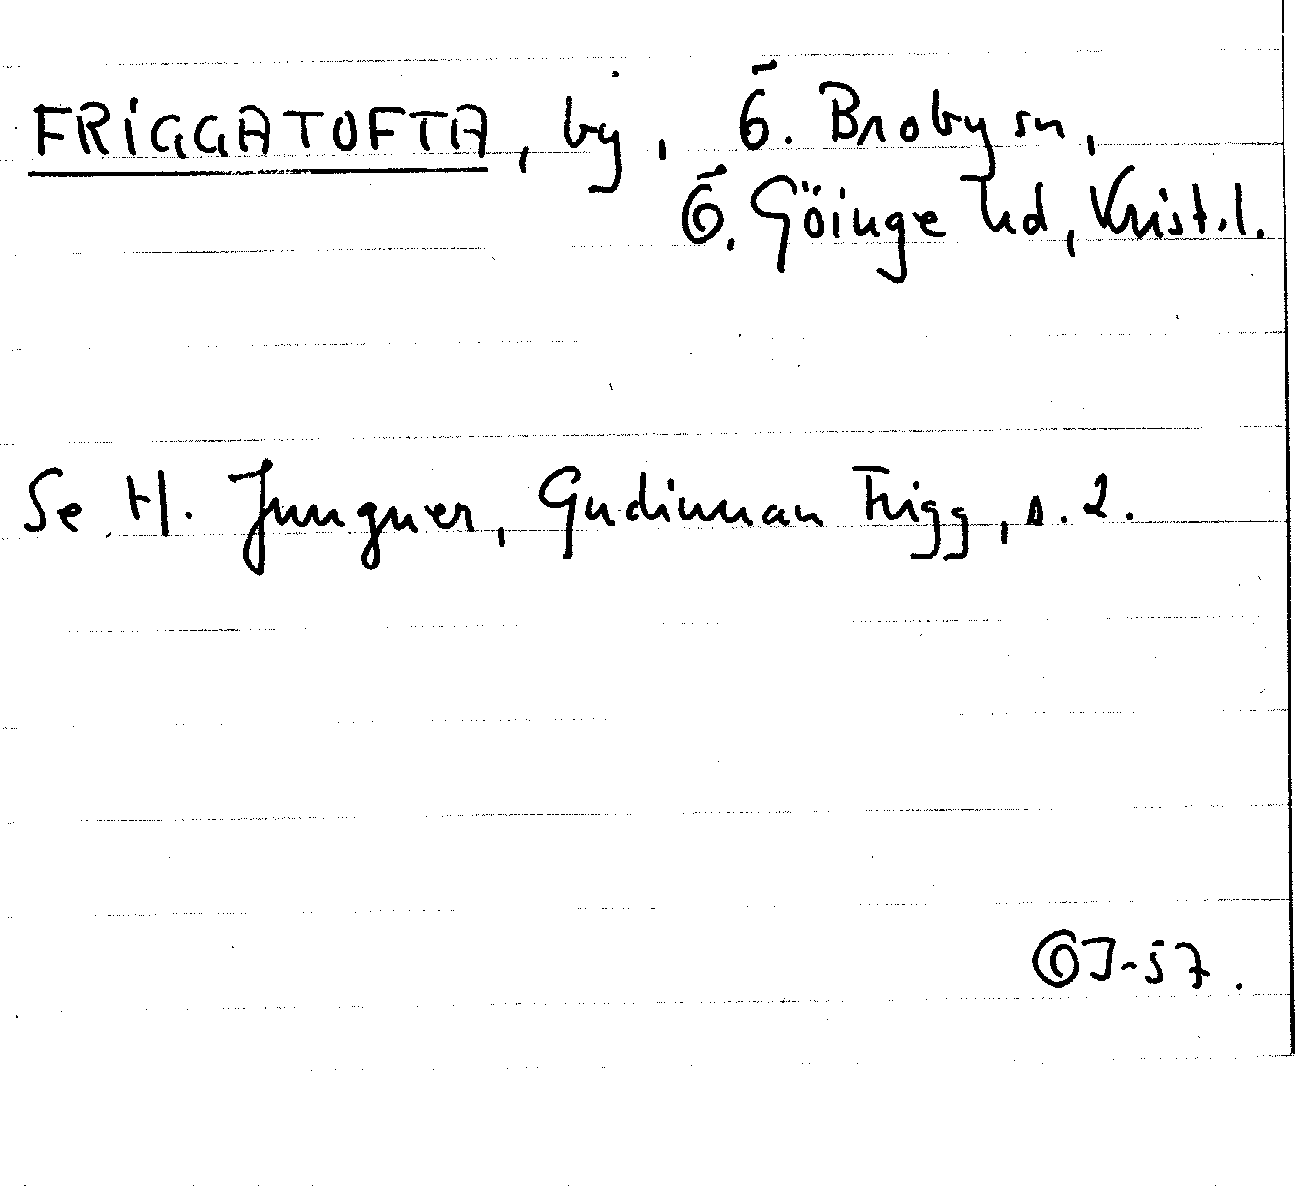 FRIGGATOFTA, by, Ö. Broby sn,
Ö. Göinge hd, Krist.l.
Se H. Jungner, Gudinnan Frigg, s. 2.
ÖJ-57.